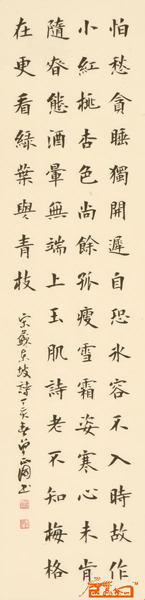 怕愁貪睡獨開遲自恐冰容不入時故作
小紅桃杏色尚餘孤瘦雪霜姿寒心未肯
隨春態酒暈無端上玉肌詩老不知梅格
在更看綠葉與青枝
宋蘇东坡詩丁亥